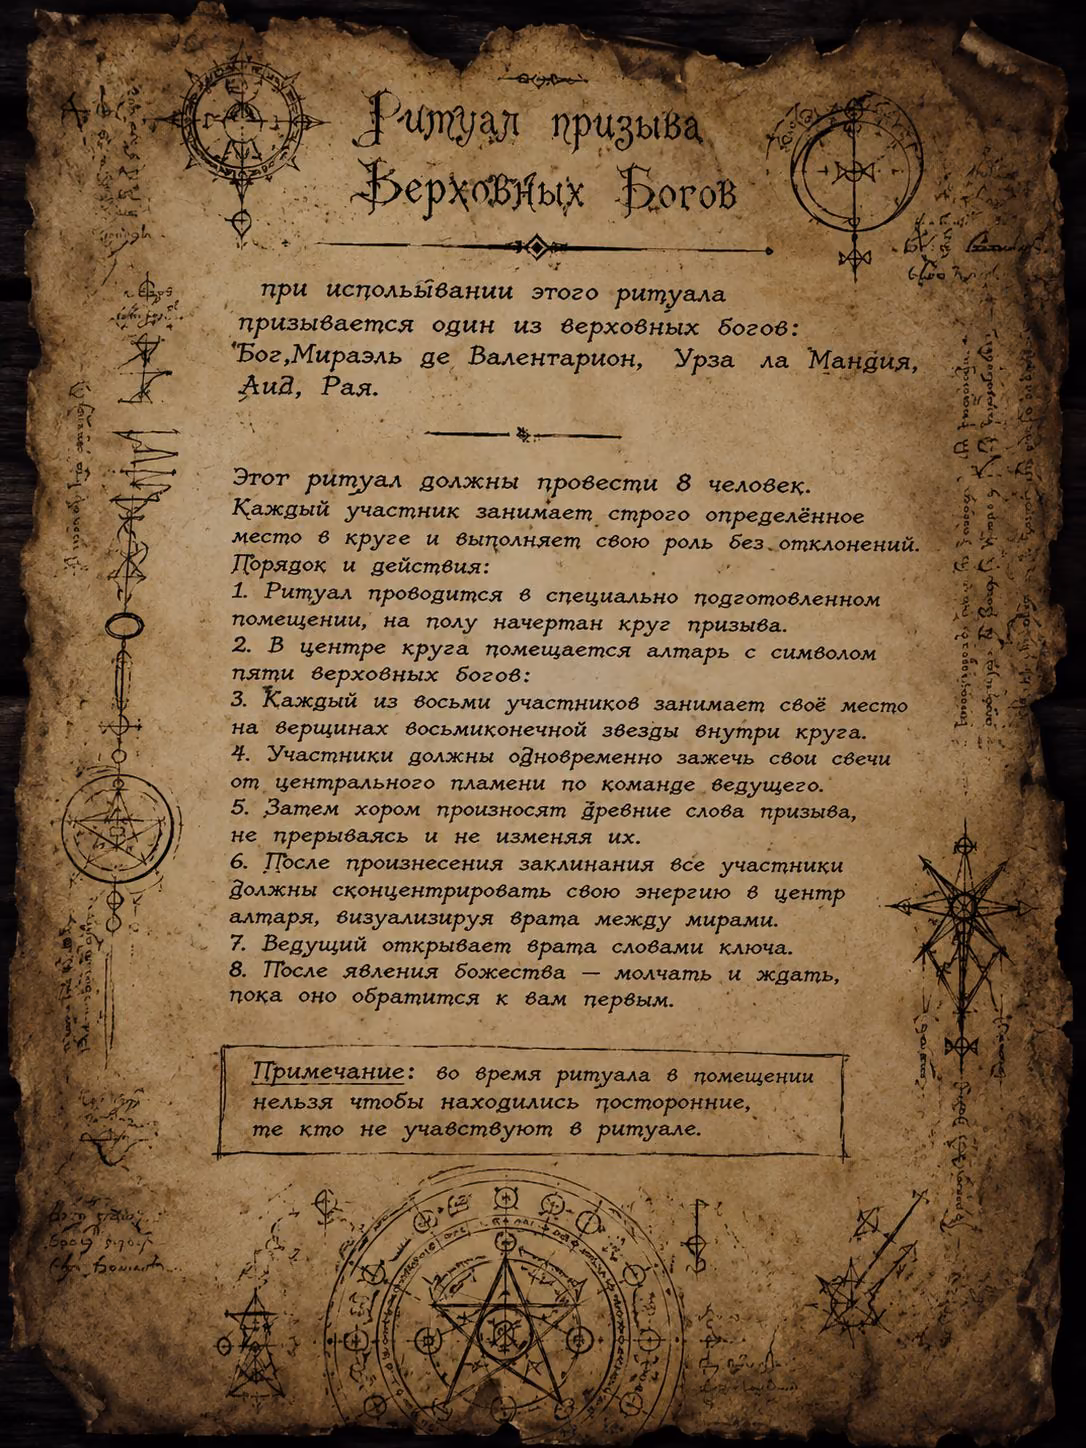 Ритуал призыва
Верховных Богов
при исполыӣвании этого ритуала
призывается один из верховных богов:
Бог,Мираэль де Валентарион, Урза ла Мандия,
Аид, Рая.
Этот ритуал должны провести 8 человек.
Каждый участник занимает строго определённое
место в круге и выполняет свою роль без отклонений.
Порядок и действия:
1. Ритуал проводится в специально подготовленном
помещении, на полу начертан круг призыва.
2. В центре круга помещается алтарь с символом
пяти верховных богов:
3. Каждый из восьми участников занимает своё место
на верщинах восьмиконечной звезды внутри круга.
4. Участники должны одновременно зажечь свои свечи
от центрального пламени по команде ведущего.
5. Затем хором произносят древние слова призыва,
не прерываясь и не изменяя их.
6. После произнесения заклинания все участники
должны сконцентрировать свою энергию в центр
алтаря, визуализируя врата между мирами.
7. Ведущий открывает врата словами ключа.
8. После явления божества — молчать и ждать,
пока оно обратится к вам первым.
Примечание: во время ритуала в помещении
нельзя чтобы находились посторонние,
те кто не учавствуют в ритуале.